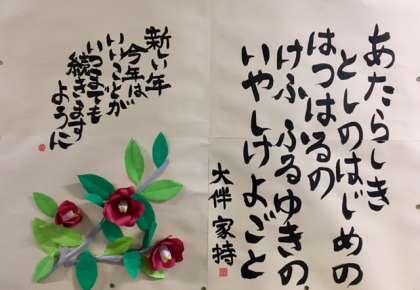 あたらしき
としのはじめの
はつはるの
けふふるゆきの
いやしけよごと
大伴家持
新しい年
今年は
いいことが
いつまでも
続きます
ように